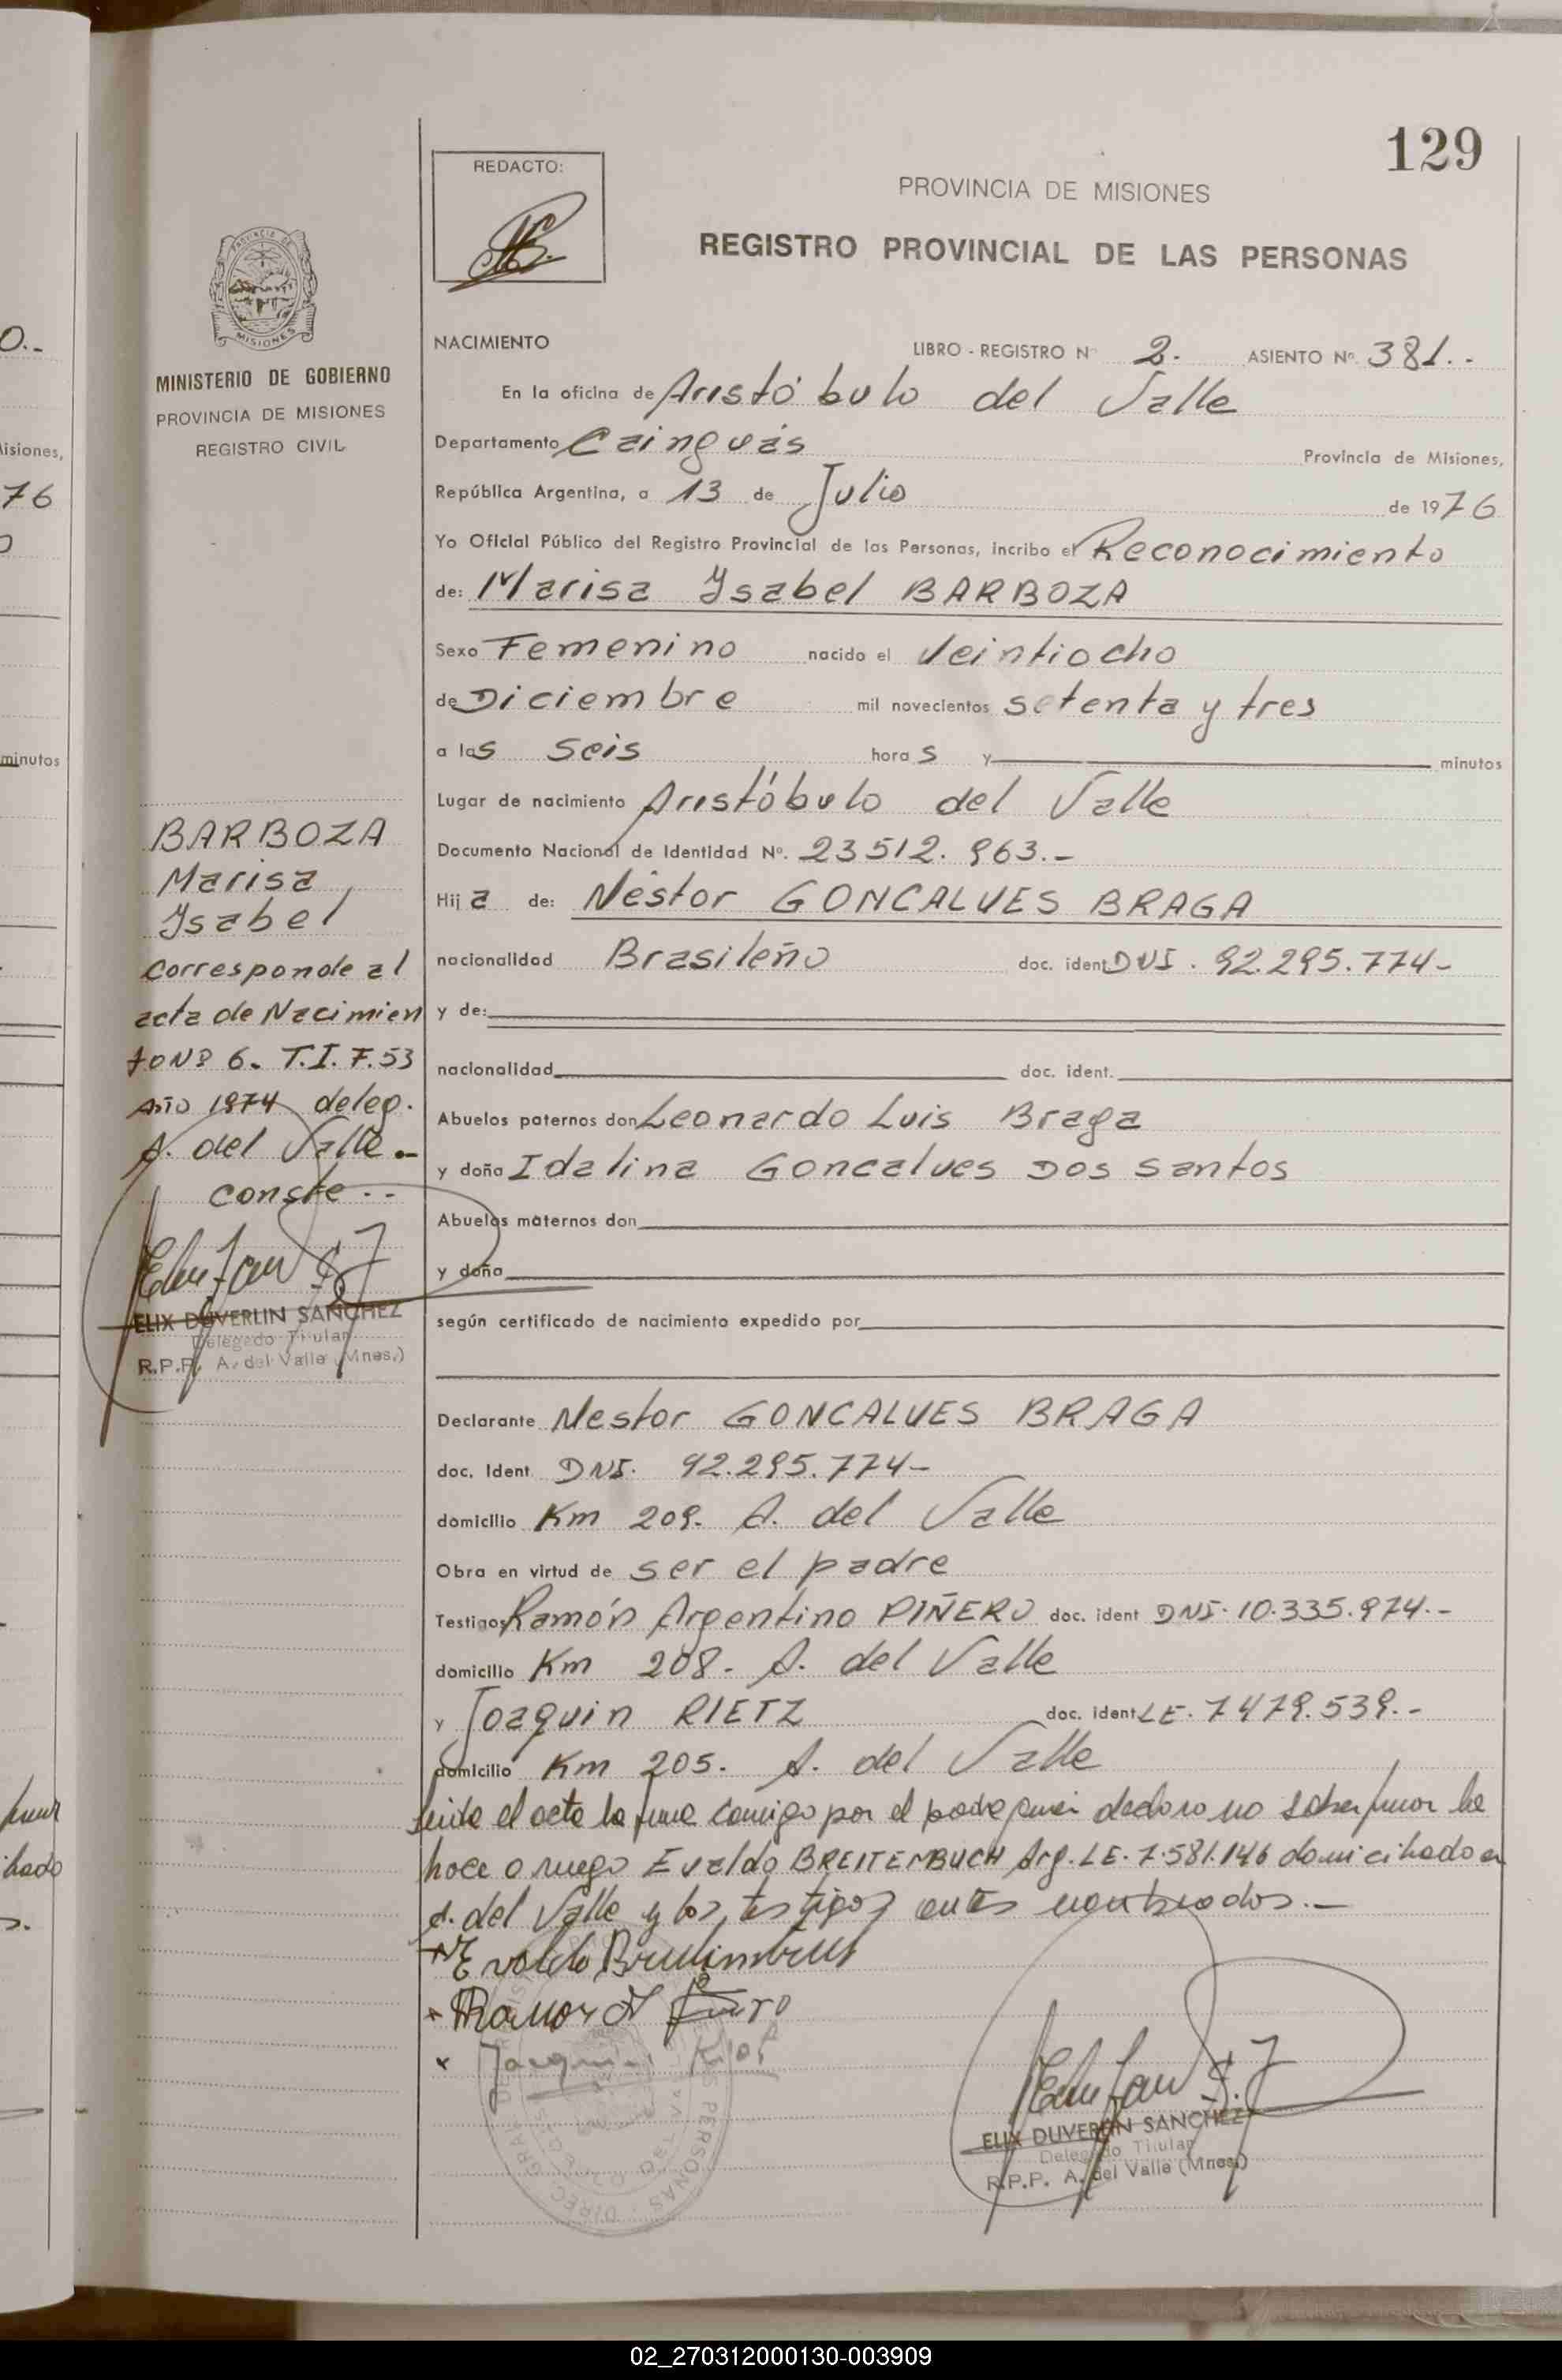 129
REDACTO:
PROVINCIA DE MISIONES
REGISTRO PROVINCIAL DE LAS PERSONAS
PROVINCIA DE
MISIONES
MINISTERIO DE GOBIERNO
PROVINCIA DE MISIONES
REGISTRO CIVIL
NACIMIENTO LIBRO - REGISTRO Nº 2. ASIENTO Nº 381.-
En la oficina de Aristóbulo del Valle
Departamento Cainguás Provincia de Misiones,
República Argentina, a 13 de Julio de 1976
Yo Oficial Público del Registro Provincial de las Personas, incribo el Reconocimiento
de: Marisa Ysabel BARBOZA
Sexo Femenino nacido el Veintiocho
de Diciembre mil novecientos setenta y tres
a las seis horas y minutos
Lugar de nacimiento Aristóbulo del Valle
Documento Nacional de Identidad Nº. 23512.963.-
Hija de: Néstor GONCALVES BRAGA
nacionalidad Brasileño doc. ident DNI. 92.295.774-
y de:
nacionalidad doc. ident.
Abuelos paternos don Leonardo Luis Braga
y doña Idalina Goncalves Dos Santos
Abuelos maternos don
y doña
según certificado de nacimiento expedido por
Declarante Nestor GONCALVES BRAGA
doc. Ident DNI. 92.295.774-
domicilio Km 209. A. del Valle
Obra en virtud de ser el padre
Testigos Ramón Argentino PIÑERO doc. ident DNI. 10.335.974.-
domicilio Km 208. A. del Valle
y Joaquin RIETZ doc. ident LE. 7479.539.-
domicilio Km 205. A. del Valle
Leida el acta la firma comigo por el padre quien declaro no saber firmar lo
hace a ruego Evaldo BREITEMBUCH Arg. LE. 7.581.146 domicihado en
A. del Valle y los testigos antes nombrados.-
BARBOZA
Marisa
Ysabel
corresponde al
acta de Nacimien
to Nº 6. T.I. F.53
Año 1974 deleg.
A. del Valle.-
conste.--
ELIX DUVERLIN SANCHEZ
Delegado Titular
R.P.P. A. del Valle (Mnes.)
ELIX DUVERLIN SANCHEZ
Delegado Titular
R.P.P. A. del Valle (Mnes.)
isiones,
76
minutos
02_270312000130-003909